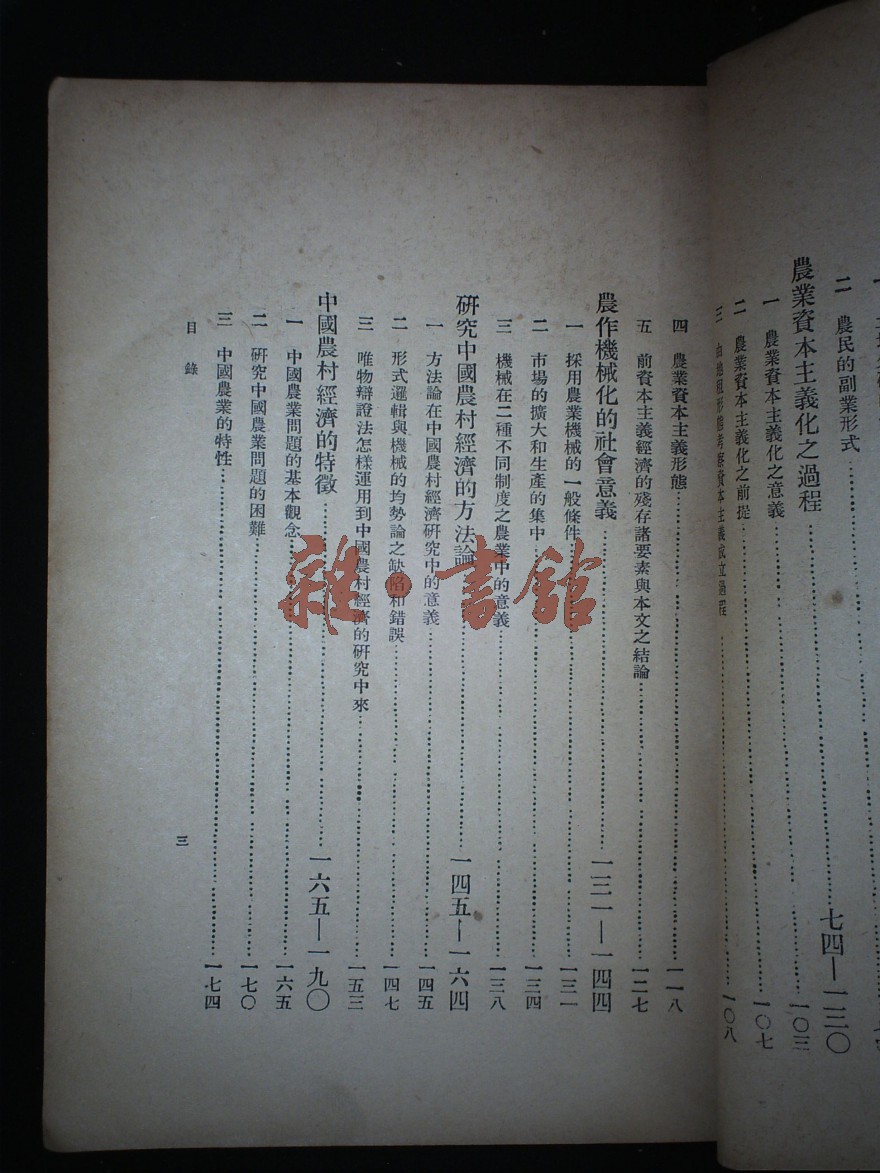 二　農民的副業形式
農業資本主義化之過程 七四—一三〇
一　農業資本主義化之意義 一〇三
二　農業資本主義化之前提 一〇七
三　由地租形態考察資本主義成立過程 一〇八
四　農業資本主義形態 一一八
五　前資本主義經濟的殘存諸要素與本文之結論 一二七
農作機械化的社會意義 一三一—一四四
一　採用農業機械的一般條件 一三一
二　市場的擴大和生產的集中 一三四
三　機械在二種不同制度之農業中的意義 一三八
研究中國農村經濟的方法論 一四五—一六四
一　方法論在中國農村經濟研究中的意義 一四五
二　形式邏輯與機械的均勢論之缺陷和錯誤 一四七
三　唯物辯證法怎樣運用到中國農村經濟的研究中來 一五三
中國農村經濟的特徵 一六五—一九〇
一　中國農業問題的基本觀念 一六五
二　研究中國農業問題的困難 一七〇
三　中國農業的特性 一七四
目錄
三
雜·書館